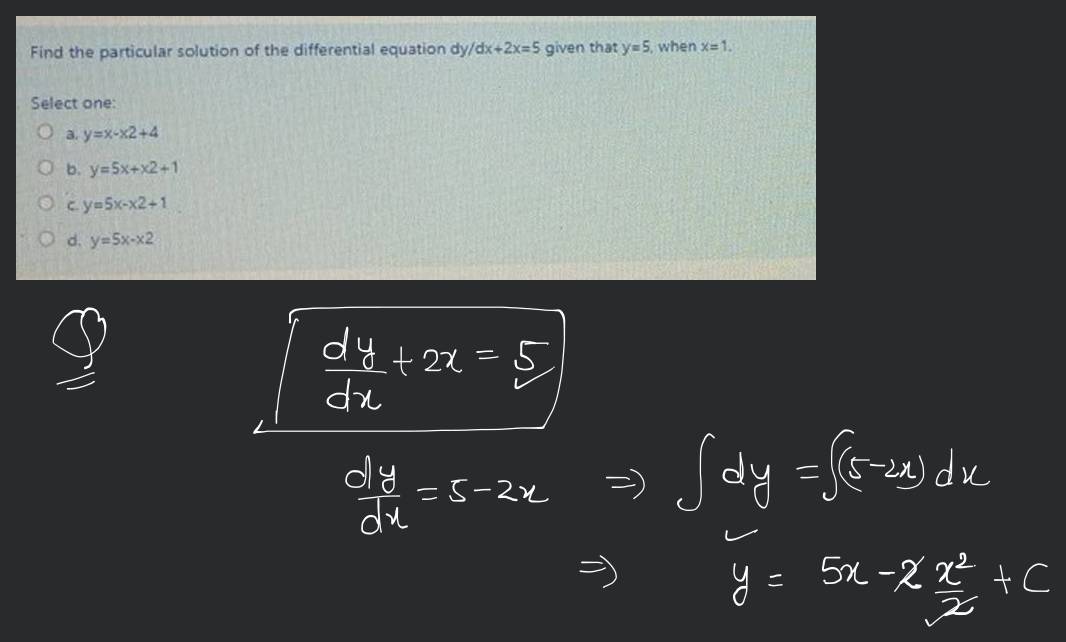 Find the particular solution of the differential equation dy/dx+2x=5 given that y=5, when x=1.
Select one:
a. y=x-x2+4
b. y=5x+x2+1
c. y=5x-x2+1
d. y=5x-x2
dy/dx + 2x = 5
dy/dx = 5-2x ⇒ ∫dy = ∫(5-2x) dx
⇒ y = 5x - 2 x²/2 + C